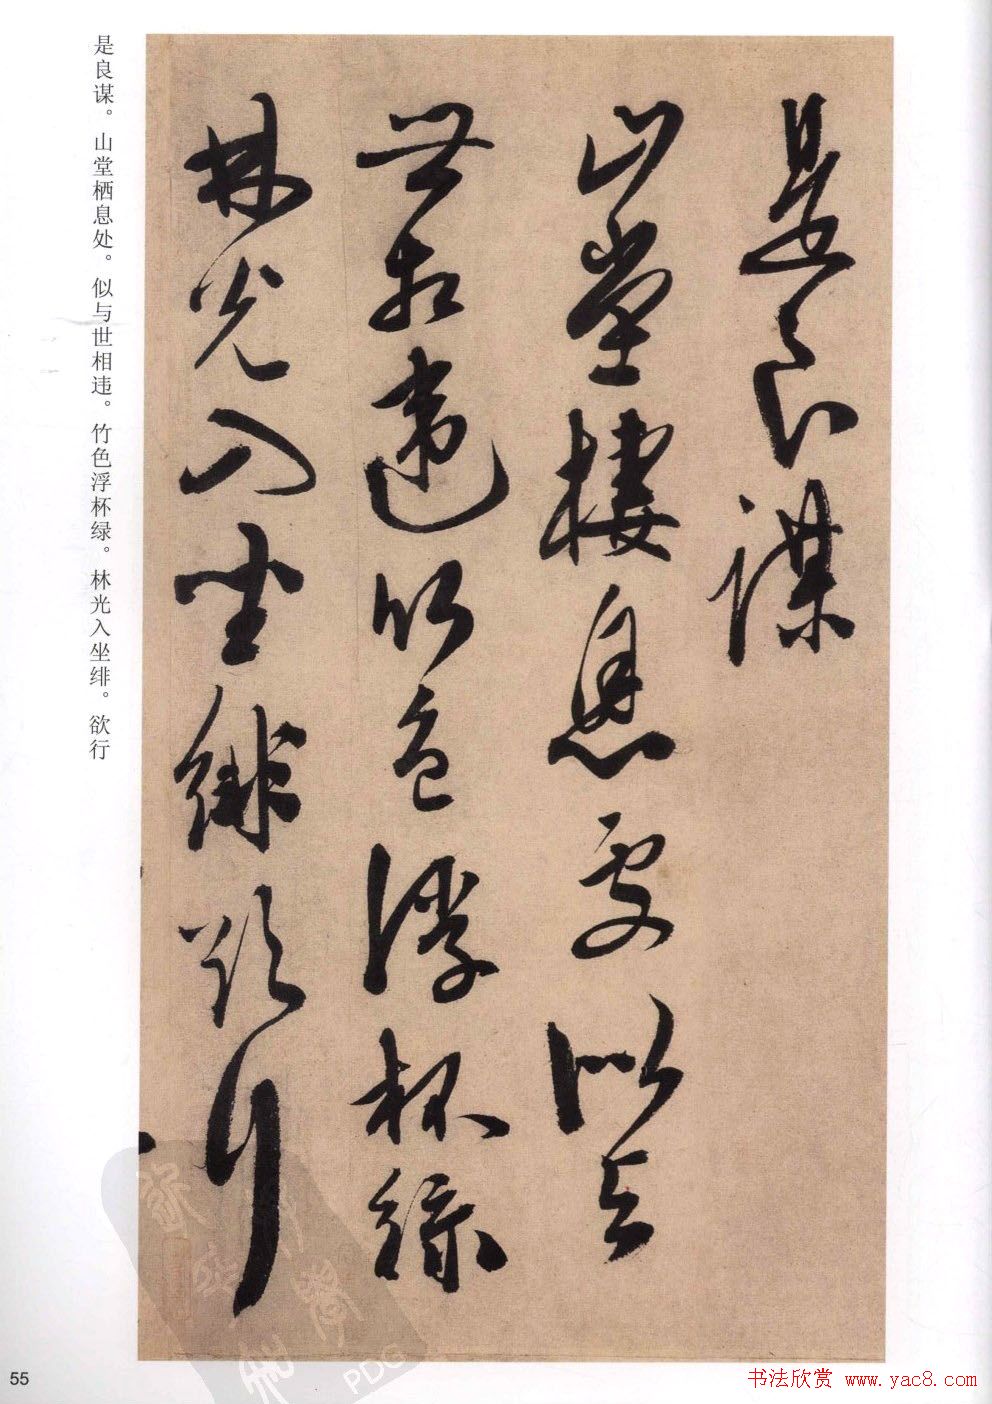 是良谋
山堂棲息处似与
世相違竹色浮杯緑
林光入坐緋欲行
是良谋。山堂栖息处。似与世相违。竹色浮杯绿。林光入坐绯。欲行
PDG
55
书法欣赏 www.yac8.com